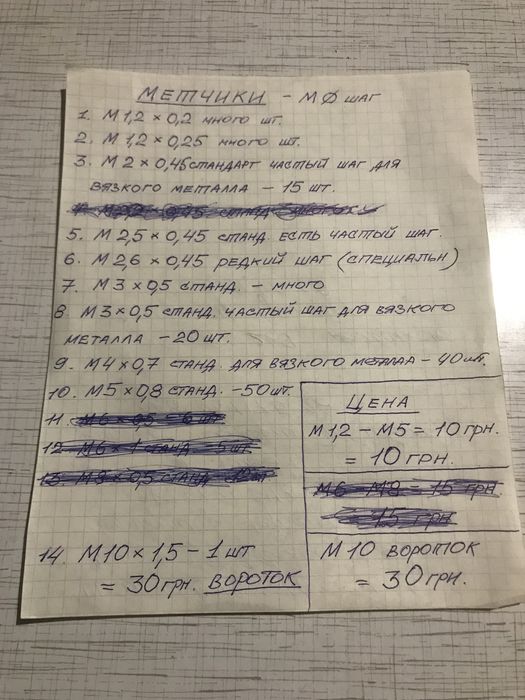 МЕТЧИКИ - МØ ШАГ
1. М 1,2 × 0,2 МНОГО ШТ.
2. М 1,2 × 0,25 МНОГО ШТ.
3. М 2 × 0,45 СТАНДАРТ ЧАСТЫЙ ШАГ ДЛЯ
ВЯЗКОГО МЕТАЛЛА - 15 ШТ.
5. М 2,5 × 0,45 СТАНД. ЕСТЬ ЧАСТЫЙ ШАГ.
6. М 2,6 × 0,45 РЕДКИЙ ШАГ (СПЕЦИАЛЬН)
7. М 3 × 0,5 СТАНД. - МНОГО
8. М 3 × 0,5 СТАНД. ЧАСТЫЙ ШАГ ДЛЯ ВЯЗКОГО
МЕТАЛЛА - 20 ШТ.
9. М 4 × 0,7 СТАНД. ДЛЯ ВЯЗКОГО МЕТАЛЛА - 40 ШТ.
10. М 5 × 0,8 СТАНД. - 50 ШТ.
11. М 6 × 0,5 - 6 ШТ
12 М 6 × 1 СТАНД - 5 ШТ.
13 М 8 × 0,5 СТАНД
14. М 10 × 1,5 - 1 ШТ
= 30 ГРН. ВОРОТОК
ЦЕНА
М 1,2 - М 5 = 10 ГРН.
= 10 ГРН.
М6 - М8 = 15 ГРН.
= 15 ГРН
М 10 ВОРОТОК
= 30 ГРН.